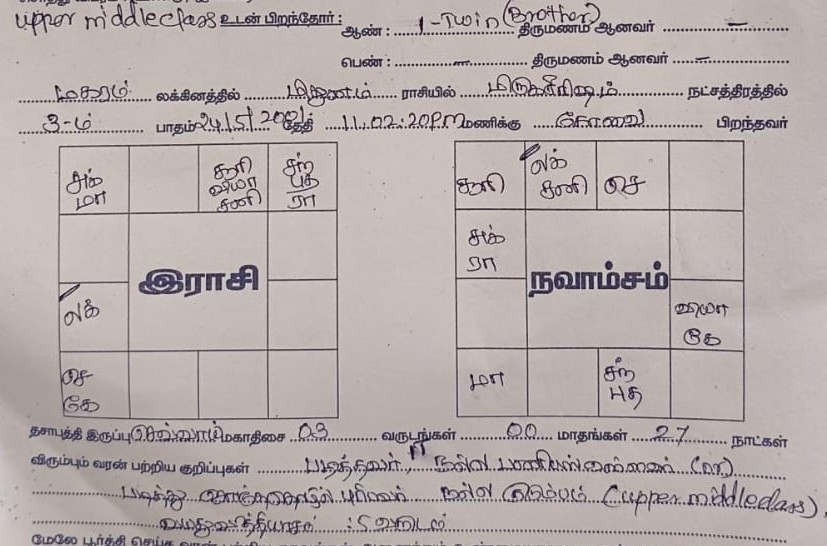 upper middleclass உடன் பிறந்தோர் : ஆண் : 1-Twin (Brother) திருமணம் ஆனவர் –
பெண் : – திருமணம் ஆனவர் –
மகரம் லக்கினத்தில் மிதுனம் ராசியில் மிருகசீரிஷம் நட்சத்திரத்தில்
3-ம் பாதம் 24/5/2001 தேதி 11.02:20PM மணிக்கு கோவை பிறந்தவர்
சுக் மா
சூரி வியா சனி
சந் புத ரா
இராசி
லக்
செ கே
சூரி
லக் சனி
செ
சுக் ரா
நவாம்சம்
வியா கே
மா
சந் புத
தசாபுத்தி இருப்பு செவ்வாய் மகாதிசை 03 வருடங்கள் 00 மாதங்கள் 27 நாட்கள்
விரும்பும் வரன் பற்றிய குறிப்புகள் படித்தவர், நல்ல (or)
படித்து நல்ல (upper middleclass),
வயது வித்தியாசம் : 5 வருடம்